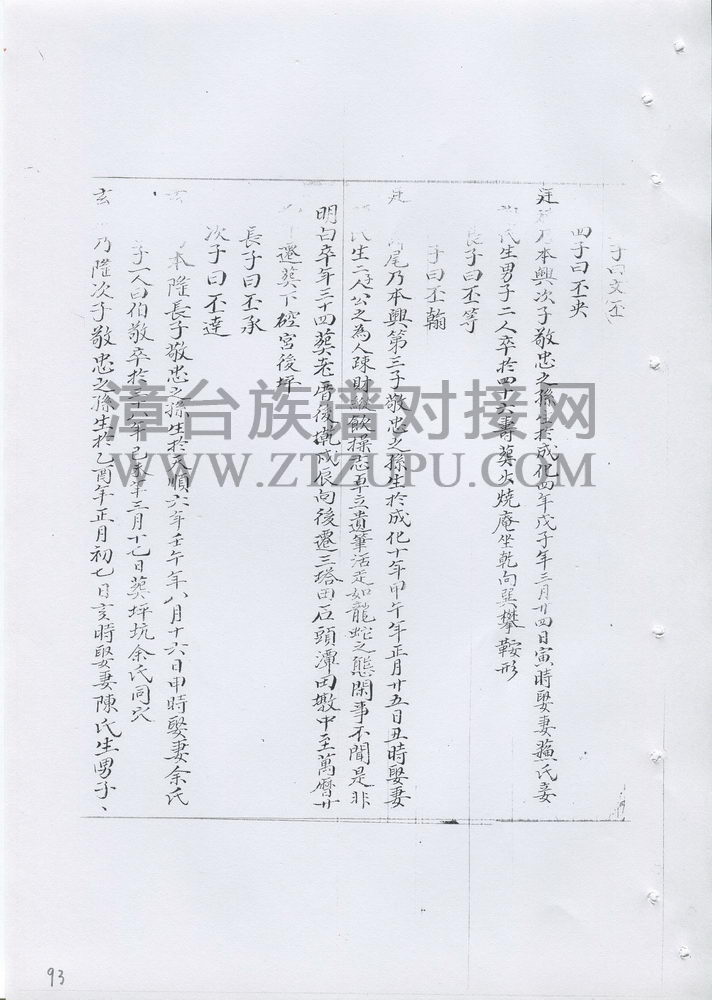 子曰文
四子曰丕央
乃本興次子敬忠之孫生於成化四年戊子年三月廿四日寅時娶妻蘇氏妾
氏生男子二人卒於四十六壽葬火燒庵坐乾向巽攀鞍形
長子曰丕等
子曰丕翰
尾乃本興第三子敬忠之孫生於成化十年甲午年正月廿五日丑時娶妻
氏生二人公之為人疎財飲操志卓立遺筆活走如龍蛇之態閑事不聞是非
明白卒年三十四葬老厝後戌辰向後遷三塔田石頭潭田墩中至萬曆廿
遷葬下硿宮後坪
長子曰丕承
次子曰丕達
本隆長子敬忠之孫生於天順六年壬午年八月十六日申時娶妻余氏
子一人曰伯敬卒於年己亥年三月十七日葬坪坑余氏同穴
玄 乃隆次子敬忠之孫生於乙酉年正月初七日亥時娶妻陳氏生男子、
漳台族谱对接网
WWW.ZTZUPU.COM
93